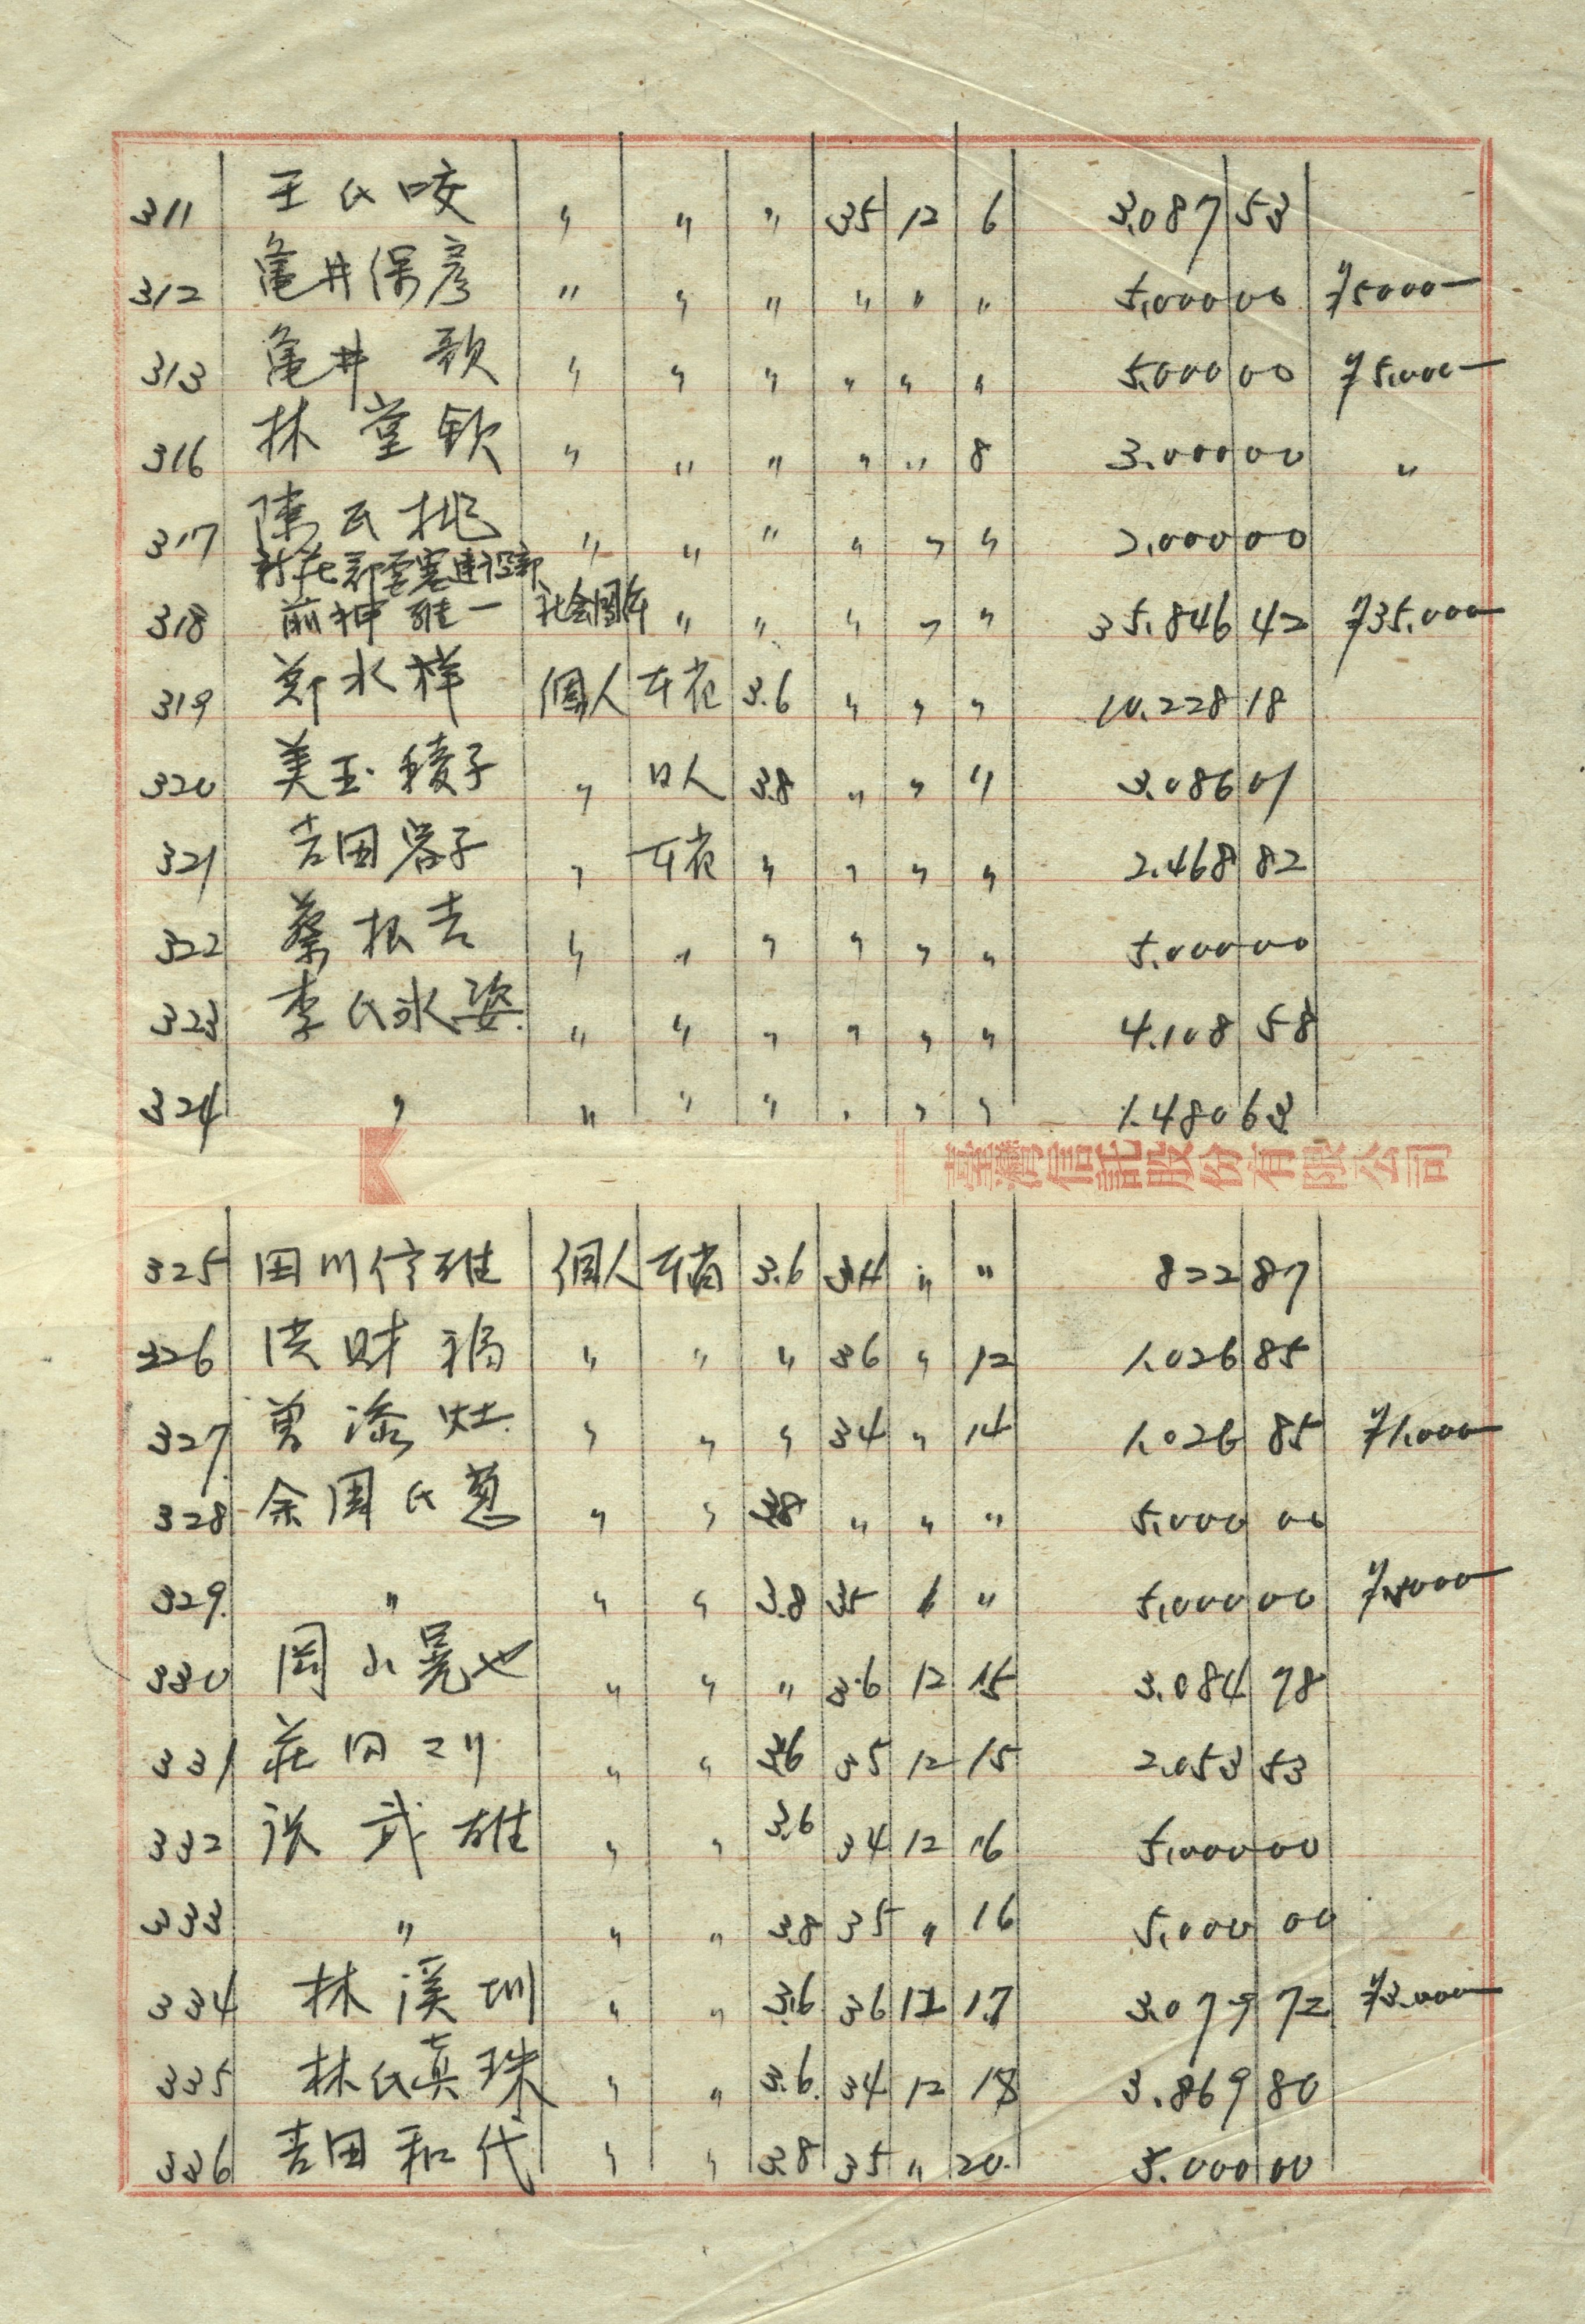 311 王氏咬 〃 〃 〃 35 12 6 3.087 53
312 亀井保彦 〃 〃 〃 〃 〃 〃 5,000 00 ¥5000-
313 亀井 歌 〃 〃 〃 〃 〃 〃 5,000 00 ¥5,000-
316 林堂欽 〃 〃 〃 〃 〃 8 3.000 00 〃
317 陳氏桃 〃 〃 〃 〃 〃 〃 2,000 00
新莊郡要塞建設部
318 前神雄一 社会團体 〃 〃 〃 〃 〃 35.846 42 ¥35,000-
319 鄭水祥 個人 本省 3.6 〃 〃 〃 10.228 18
320 美玉稜子 〃 日人 3.8 〃 〃 〃 3.086 01
321 吉田容子 〃 本省 〃 〃 〃 〃 2.468 82
322 蔡根吉 〃 〃 〃 〃 〃 〃 5.000 00
323 李氏永姿 〃 〃 〃 〃 〃 〃 4.108 58
324 〃 〃 〃 〃 〃 〃 〃 1.480 63
臺灣信託股份有限公司
325 田川信雄 個人 本省 3.6 34 〃 〃 822 87
326 洪財福 〃 〃 〃 36 〃 12 1.026 85
327 曽添灶 〃 〃 〃 34 〃 14 1.026 85 ¥1.000-
328 余周氏葱 〃 〃 3.8 〃 〃 〃 5,000 00
329 〃 〃 〃 3.8 35 〃 5,000 00
330 岡山晃也 〃 〃 〃 36 12 15 3.084 78
331 莊田マリ 〃 〃 3.6 35 12 15 2.053 53
332 張武雄 〃 〃 3.6 34 12 16 5,000 00
333 〃 〃 〃 3.8 35 〃 16 5,000 00
334 林溪圳 〃 〃 3.6 36 12 17 3.079 72 ¥3.000-
335 林氏真珠 〃 〃 3.6 34 12 18 3.869 80
336 吉田和代 〃 〃 3.8 35 〃 20 3.000 00